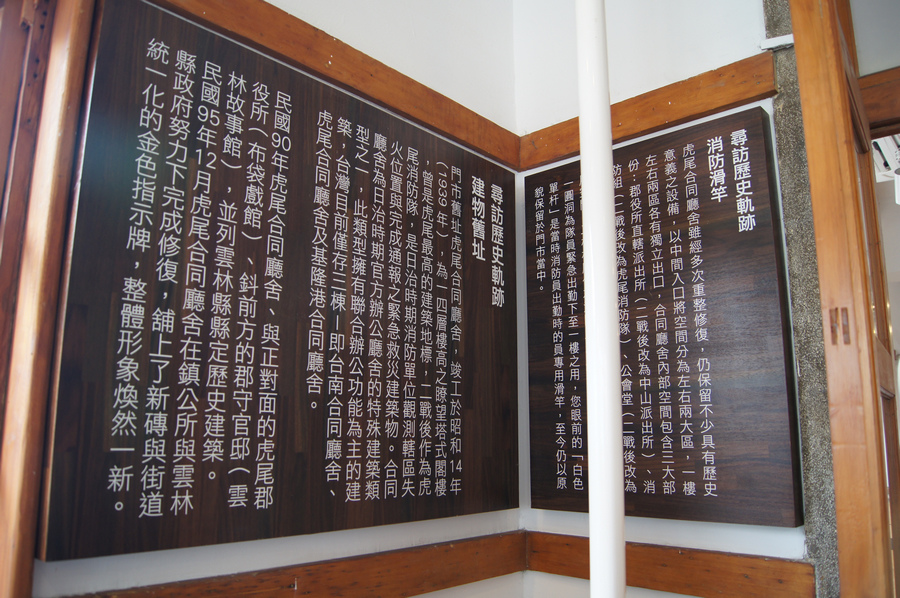 尋訪歷史軌跡
消防滑竿
虎尾合同廳舍雖經多次重整修復，仍保留不少具有歷史
意義之設備，以中間入口將空間分為左右兩大區，一樓
左右兩區各有獨立出口，合同廳舍內部空間包含三大部
份：郡役所直轄派出所（二戰後改為中山派出所）、消
防組（二戰後改為虎尾消防隊）、公會堂（二戰後改為
一圓洞為隊員緊急出勤下至一樓之用，您眼前的「白色
單杆」是當時消防員出勤時的員專用滑竿，至今仍以原
貌保留於門市當中。
尋訪歷史軌跡
建物舊址
門市舊址虎尾合同廳舍，竣工於昭和14年
（1939年），為一四層樓高之瞭望塔式閣樓
，曾是虎尾最高的建築地標，二戰後作為虎
尾消防隊，是日治時期消防單位觀測轄區失
火位置與完成通報之緊急救災建築物。合同
廳舍為日治時期官方辦公廳舍的特殊建築類
型之一，此類型擁有聯合辦公功能為主的建
築，台灣目前僅存三棟，即台南合同廳舍、
虎尾合同廳舍及基隆港合同廳舍。
民國90年虎尾合同廳舍、與正對面的虎尾郡
役所（布袋戲館）、斜前方的郡守官邸（雲
林故事館），並列雲林縣縣定歷史建築。
民國95年12月虎尾合同廳舍在鎮公所與雲林
縣政府努力下完成修復，舖上了新磚與街道
統一化的金色指示牌，整體形象煥然一新。